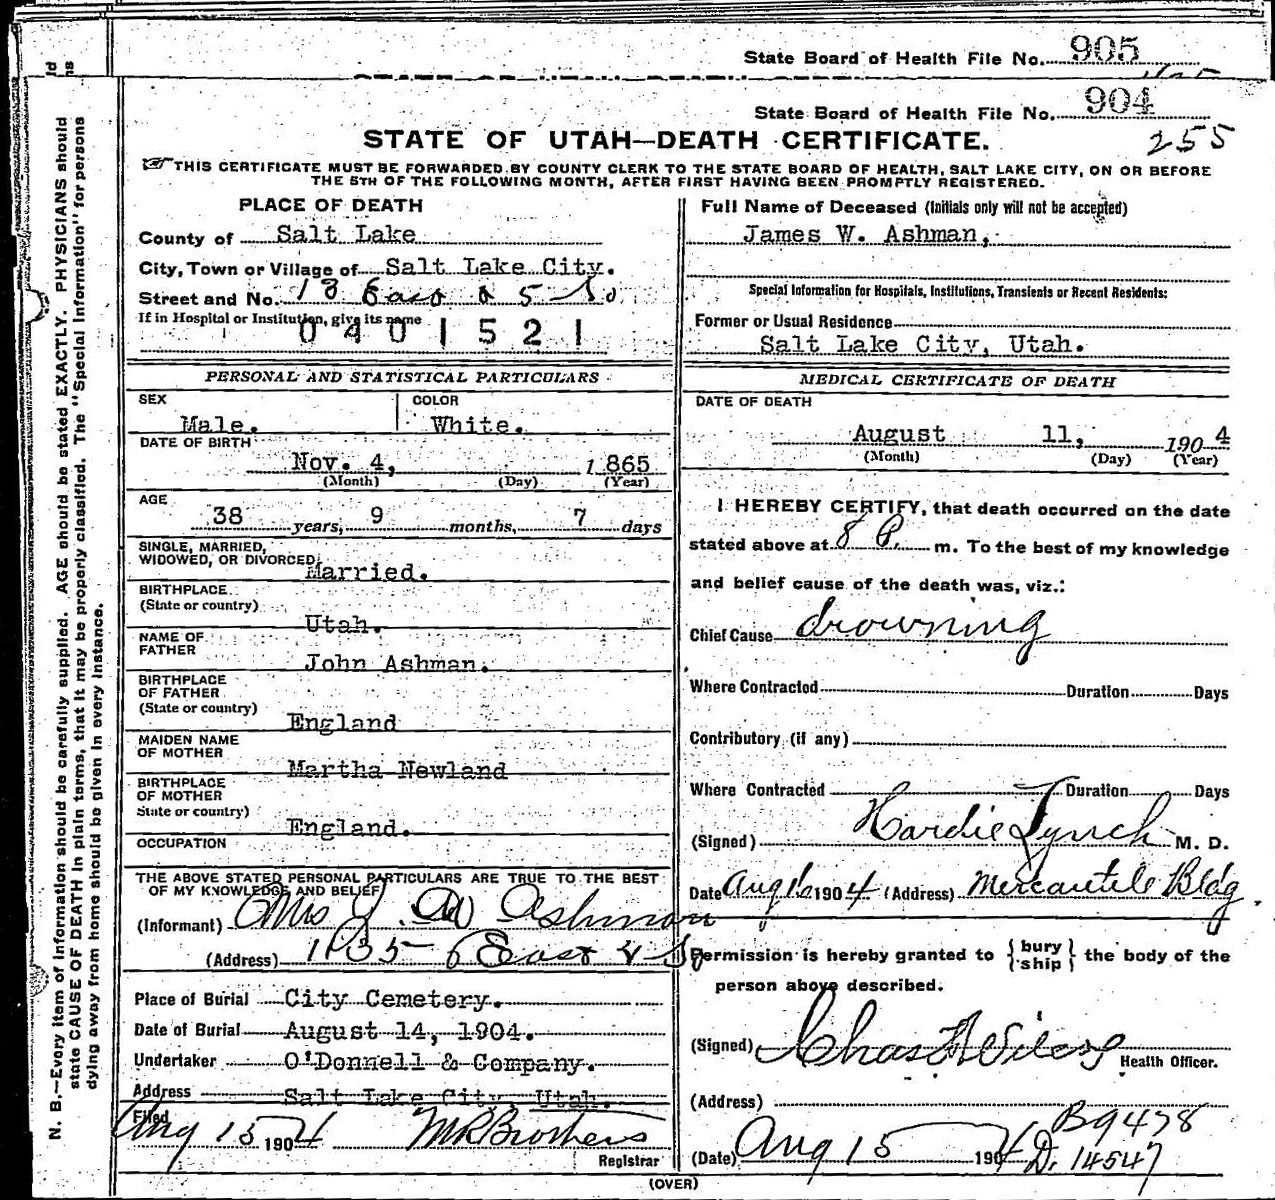 State Board of Health File No. 905
State Board of Health File No. 904
255
STATE OF UTAH—DEATH CERTIFICATE.
THIS CERTIFICATE MUST BE FORWARDED BY COUNTY CLERK TO THE STATE BOARD OF HEALTH, SALT LAKE CITY, ON OR BEFORE
THE 5TH OF THE FOLLOWING MONTH, AFTER FIRST HAVING BEEN PROMPTLY REGISTERED.
PLACE OF DEATH
County of Salt Lake
City, Town or Village of Salt Lake City.
Street and No.
If in Hospital or Institution, give its name
0401521
Full Name of Deceased (Initials only will not be accepted)
James W. Ashman,
Special Information for Hospitals, Institutions, Transients or Recent Residents:
Former or Usual Residence
Salt Lake City, Utah.
PERSONAL AND STATISTICAL PARTICULARS
SEX Male.
COLOR White.
DATE OF BIRTH
Nov. 4, 1865
(Month) (Day) (Year)
AGE
38 years, 9 months, 7 days
SINGLE, MARRIED,
WIDOWED, OR DIVORCED, Married.
BIRTHPLACE
(State or country)
Utah.
NAME OF
FATHER
John Ashman.
BIRTHPLACE
OF FATHER
(State or country)
England
MAIDEN NAME
OF MOTHER
Martha Newland
BIRTHPLACE
OF MOTHER
State or country)
England.
OCCUPATION
THE ABOVE STATED PERSONAL PARTICULARS ARE TRUE TO THE BEST
OF MY KNOWLEDGE AND BELIEF
(Informant) Mrs J. W Ashman
(Address) East 4 So
Place of Burial City Cemetery.
Date of Burial August 14, 1904.
Undertaker O'Donnell & Company.
Address Salt Lake City, Utah.
Filed
Aug 15 1904 M R Brothers
Registrar
MEDICAL CERTIFICATE OF DEATH
DATE OF DEATH
August 11, 1904
(Month) (Day) (Year)
I HEREBY CERTIFY, that death occurred on the date
stated above at 8 P. m. To the best of my knowledge
and belief cause of the death was, viz.:
Chief Cause drowning
Where Contracted Duration Days
Contributory (if any)
Where Contracted Duration Days
(Signed) Hardie Lynch M. D.
Date Aug 1904 (Address) Mercantile Bldg
Permission is hereby granted to { bury ship } the body of the
person above described.
(Signed) Chas
Health Officer.
(Address)
B9478
(Date) Aug 15 1904 D. 14547
(OVER)
N. B.—Every item of information should be carefully supplied. AGE should be stated EXACTLY. PHYSICIANS should
state CAUSE OF DEATH in plain terms, that it may be properly classified. The "Special Information" for persons
dying away from home should be given in every instance.